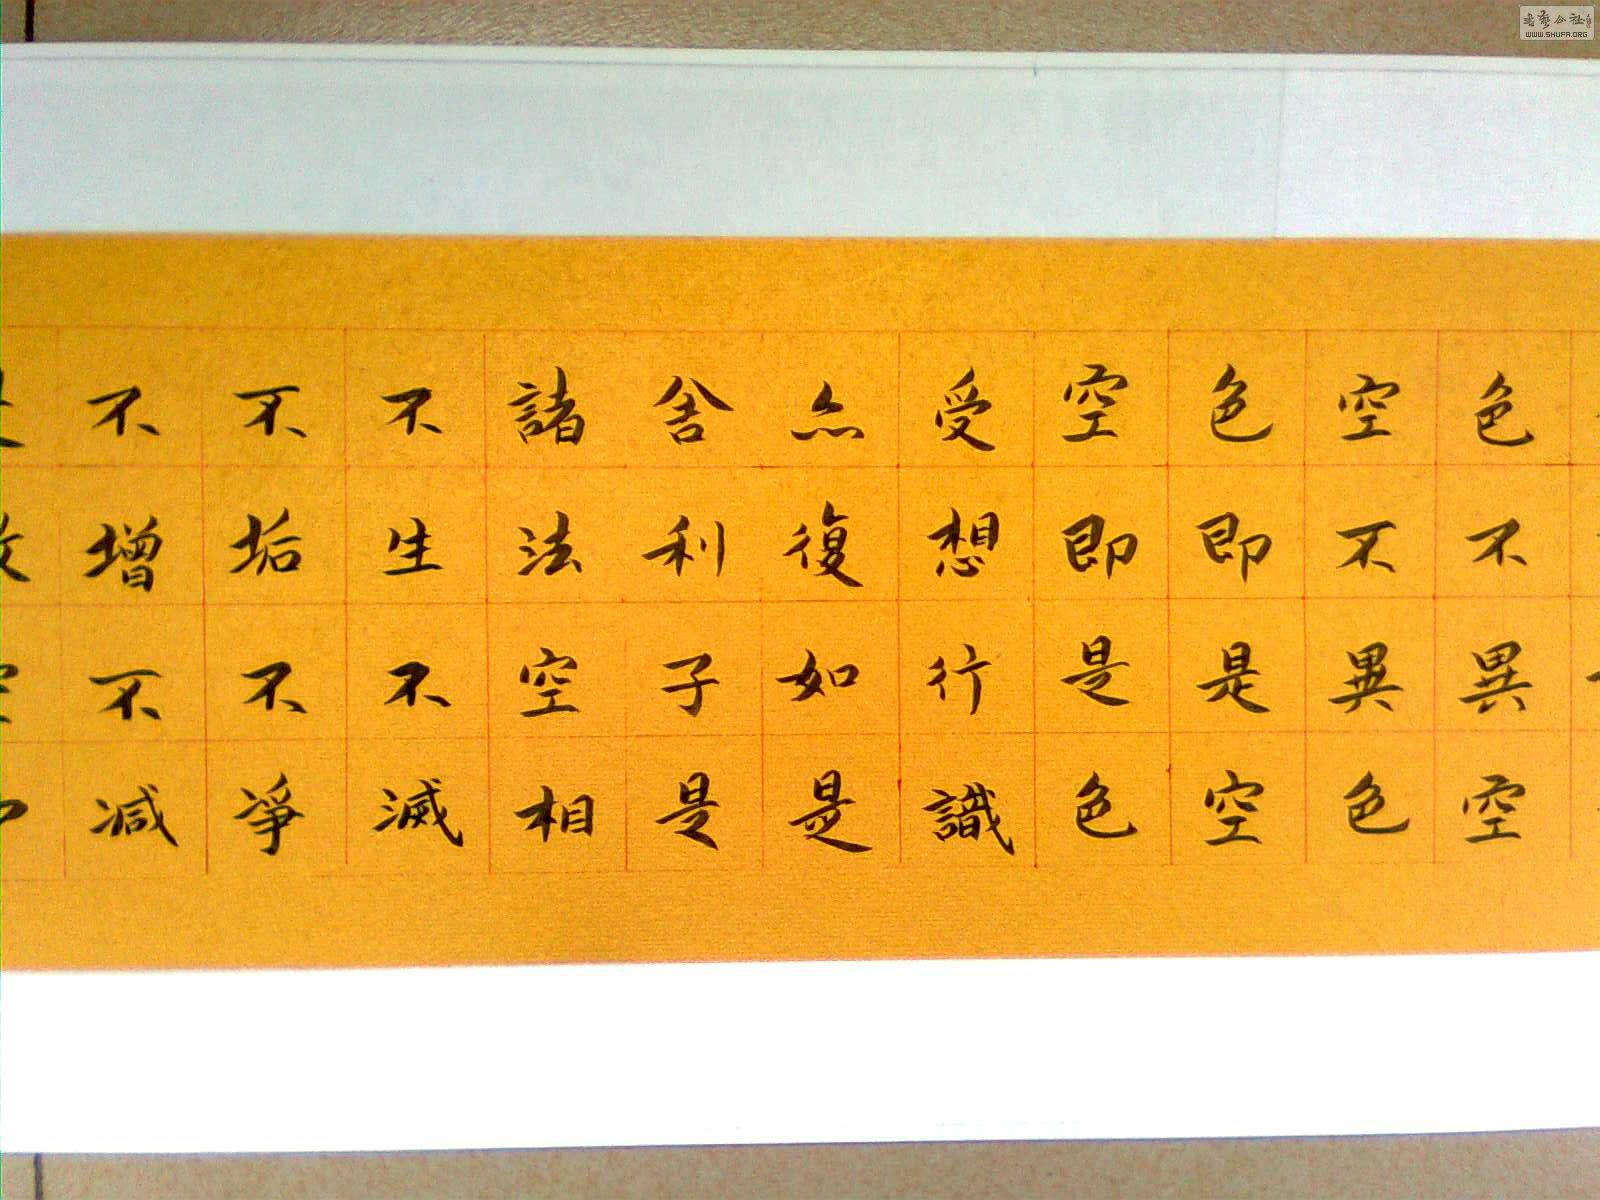 色不異空
空不異色
色即是空
空即是色
受想行識
亦復如是
舍利子是
諸法空相
不生不滅
不垢不淨
不增不減
WWW.SHUFA.ORG